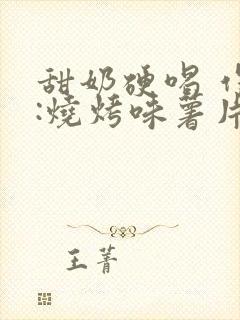 甜奶硬唱
:燒烤味薯片
王菁